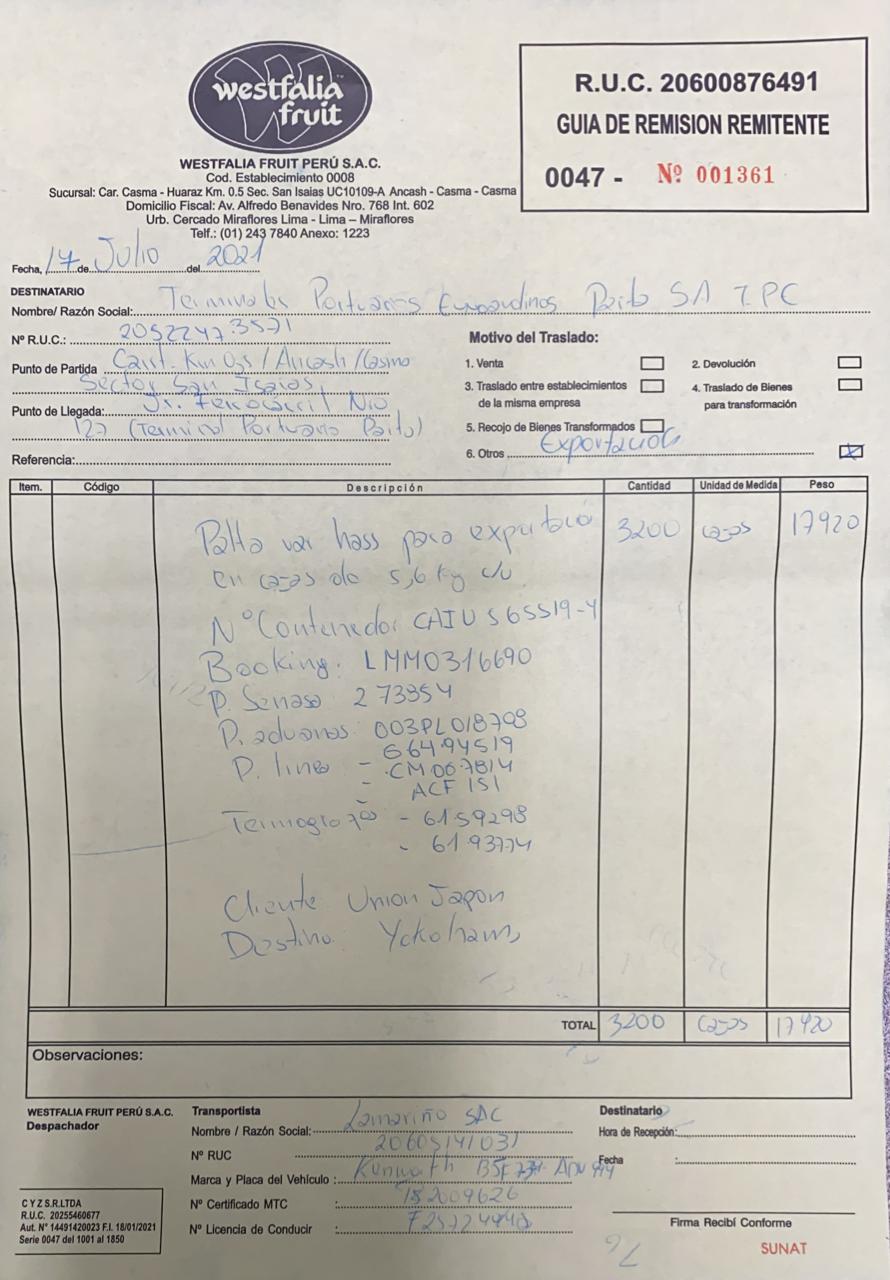 westfalia™
fruit
WESTFALIA FRUIT PERÚ S.A.C.
Cod. Establecimiento 0008
Sucursal: Car. Casma - Huaraz Km. 0.5 Sec. San Isaias UC10109-A Ancash - Casma - Casma
Domicilio Fiscal: Av. Alfredo Benavides Nro. 768 Int. 602
Urb. Cercado Miraflores Lima - Lima – Miraflores
Telf.: (01) 243 7840 Anexo: 1223
R.U.C. 20600876491
GUIA DE REMISION REMITENTE
0047 - Nº 001361
Fecha, 17 de Julio del 2021
DESTINATARIO
Nombre/ Razón Social: Terminales Portuarios Euroandinos Paita SA TPC
Nº R.U.C.: 20522473571
Punto de Partida Carrt. Km 0,5 / Ancash / Casma
Sector San Isaias
Punto de Llegada: Jr. Ferrocarril Nro
127 (Terminal Portuario Paita)
Referencia:
Motivo del Traslado:
1. Venta
2. Devolución
3. Traslado entre establecimientos
de la misma empresa
4. Traslado de Bienes
para transformación
5. Recojo de Bienes Transformados
6. Otros Exportación X
Item. Código Descripción Cantidad Unidad de Medida Peso
Palta var hass para exportació 3200 cajas 17920
en cajas de 5,6 kg c/u
Nº Contenedor CAIU 565519-4
Booking: LMM0316690
P. Senasa 273354
P. aduanas: 003PL018708
P. linea - 66494519
- CM007814
- ACF 151
- 6159298
- 6193774
Cliente Union Japon
Destino: Yokohama
TOTAL 3200 cajas 17920
Observaciones:
WESTFALIA FRUIT PERÚ S.A.C.
Despachador
Transportista
Nombre / Razón Social: Lamariño SAC
Nº RUC 20605141031
Marca y Placa del Vehículo : Kenworth
Nº Certificado MTC : 152009626
Nº Licencia de Conducir :
Destinatario
Hora de Recepción:
Fecha :
Firma Recibí Conforme
SUNAT
C Y Z S.R.LTDA
R.U.C. 20255460677
Aut. Nº 14491420023 F.I. 18/01/2021
Serie 0047 del 1001 al 1850